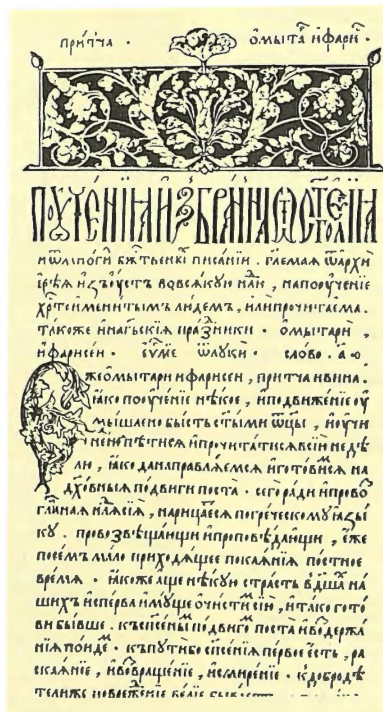 при́тча · ѡ мыта҇ и҆ фарис҇
ПОꙊЧЕ́НЇА И҆ЗБРА́ННАА Ѿ С҃ТА́ГО ЕѴⷢ҇ЛЇА
и҆ ѿ мно́ги бж҃тьвены писа́нїи . гл҃емая ѿ а҆рхи
ере́ѧ и҆зъꙋ҆стъ во всѧ́кꙋю нл҃ю , на поꙋче́нїе
хр҃тоимени́тымъ лю́демъ ,
та́коже и҆ на гь҃скїѧ пра́зники · ѡ мытари̑ ,
и҆ фарисе́и · еѵⷢ҇лїе ѿ лꙋки̑ · сло́во · а҃ ю
Иже ѡ мытари и҆ фарисеи , при́тча ꙗ҆вле́на .
ꙗ҆́ко поꙋче́нїе нѣ́кое , и҆ подвиже́нїе оу҆
мы́шлено бы́сть ст҃ы́ми ѿц҃ы̀ , и҆
и҆ прочита́тисѧ в сїю̀ недѣ́
лю , ꙗ҆́ко да на правлѧ́емсѧ и҆ гото́вимсѧ на
дх҃о́вныѧ по́двиги поста̀ · сего̀ ра́ди и҆ прово
гл҃наѧ нл҃ѧ сїѧ̀ , нарица́етсѧ по гре́ческомꙋ ꙗ҆зы́
кꙋ . провозвѣща́ющи и҆ проповѣ́дающи , е҆́же
посе́мъ ма́ло приходѧ́щее покаѧ́нїѧ по́стное
вре́мѧ · ꙗ҆́коже а҆́ще нѣ́кꙋю стра́сть в дш҃а на
шихъ и҆спе́рва и҆мꙋ́ще ѡ҆чи́стим сїю̀ , и҆ та́ко гото́
ви бы́вше . къ сп҃сены̀ по́двигом поста̀ и҆ воздержа́
нїѧ по́идем · къ пꙋти́ бо сп҃се́нїѧ пе́рвое е҆́сть , ра
ска́ѧнїе , и҆ возвраще́нїе , и҆ смире́нїе · к добродѣ́
тели же